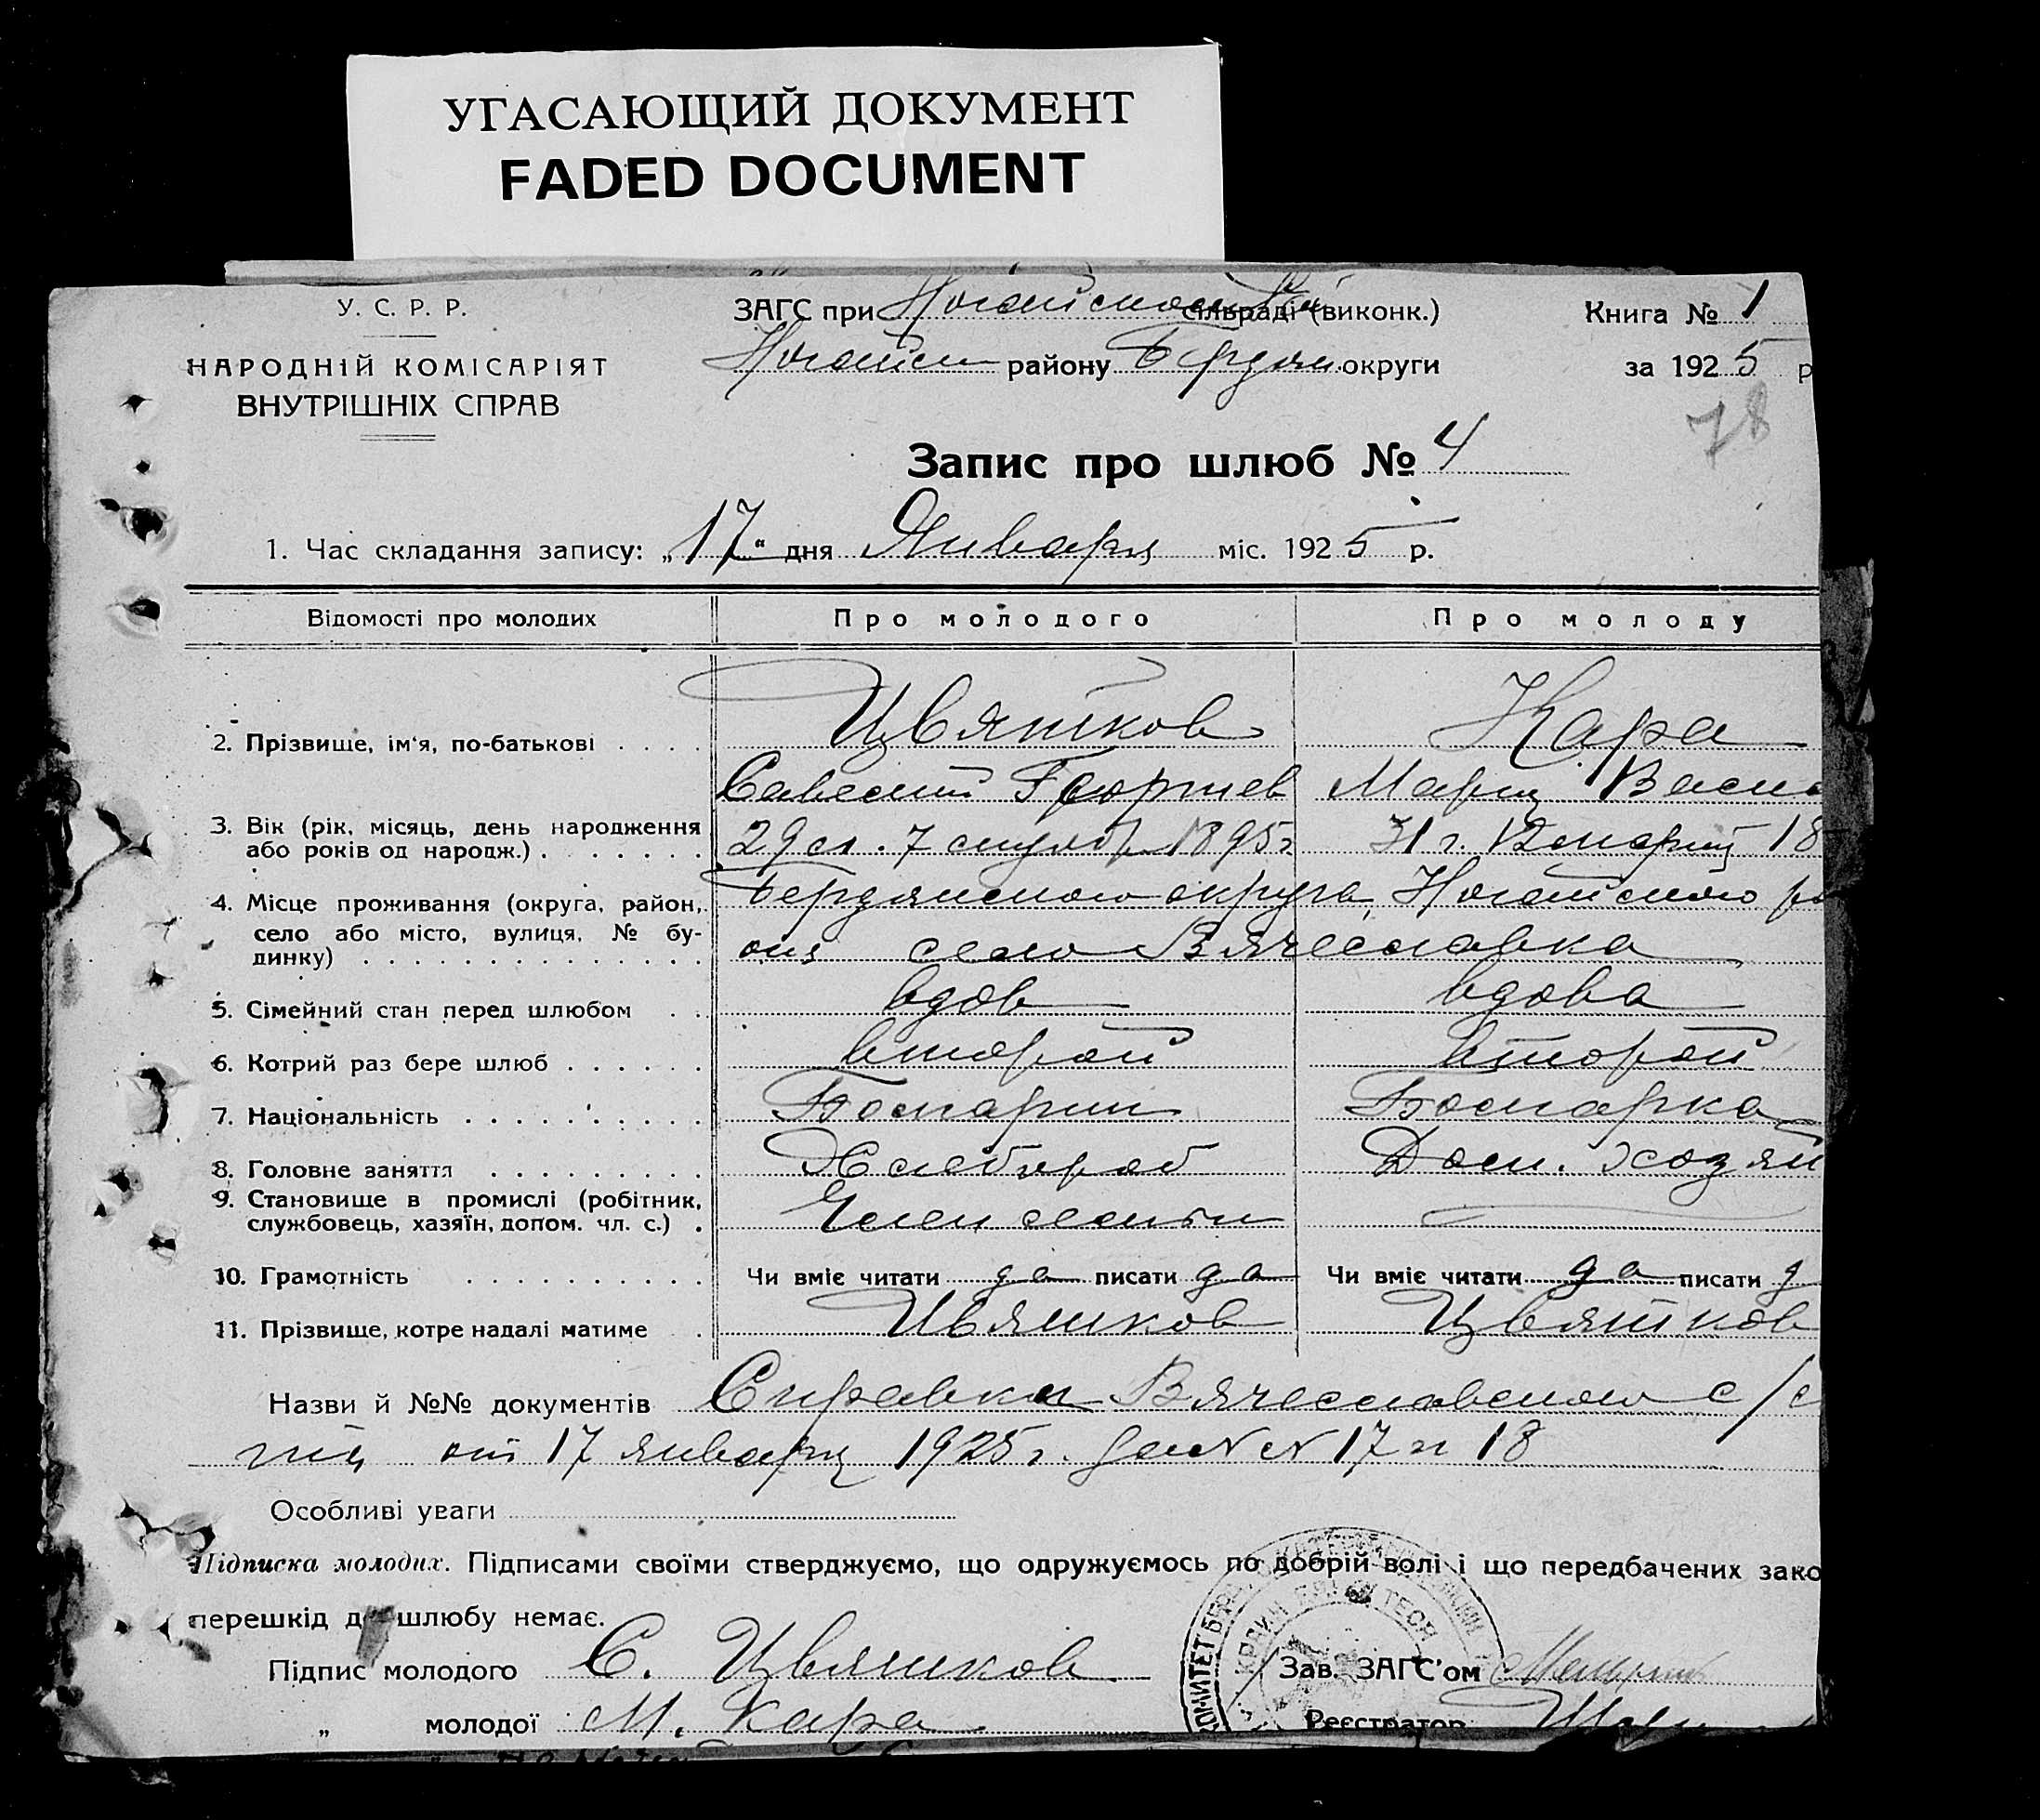 УГАСАЮЩИЙ ДОКУМЕНТ
FADED DOCUMENT
У. С. Р. Р.
НАРОДНІЙ КОМІСАРІЯТ
ВНУТРІШНІХ СПРАВ
ЗАГС при Ногайском сільраді (виконк.)
Ногайск району Бердян. округи
Книга № 1
за 1925 р
78
Запис про шлюб № 4
1. Час складання запису: „17“ дня Января міс. 1925 р.
Відомості про молодих Про молодого Про молоду
2. Прізвище, ім'я, по-батькові . . . . Цвятков Кара
Савелий Георгиев Мария Васи
3. Вік (рік, місяць, день народження або років од народж.) . . . . . . 29 7 1895г 31 г. 18
4. Місце проживання (округа, район, село або місто, вулиця, № будинку) . . . Бердянского округа, Ногайского ра
она село Вячеславка
5. Сімейний стан перед шлюбом . . вдов вдова
6. Котрий раз бере шлюб . . . . . . второй второй
7. Національність . . . . . . . . . . Болгарин Болгарка
8. Головне заняття . . . . . . . . . Хлебороб Дом. хозяй
9. Становище в промислі (робітник, службовець, хазяїн, допом. чл. с.) . Член семьи
10. Грамотність . . . . . . . . . . Чи вміє читати да писати да Чи вміє читати да писати д
11. Прізвище, котре надалі матиме . . Цвятков Цвятков
Назви й №№ документів Справки Вячеславского с/с
от 17 января 1925 г. за N N 17 и 18
Особливі уваги
Підписка молодих. Підписами своїми стверджуємо, що одружуємось по добрій волі і що передбачених зако
перешкід до шлюбу немає.
Підпис молодого С. Цвятков
„ молодої М. Кара
Зав. ЗАГС'ом
Реєстратор